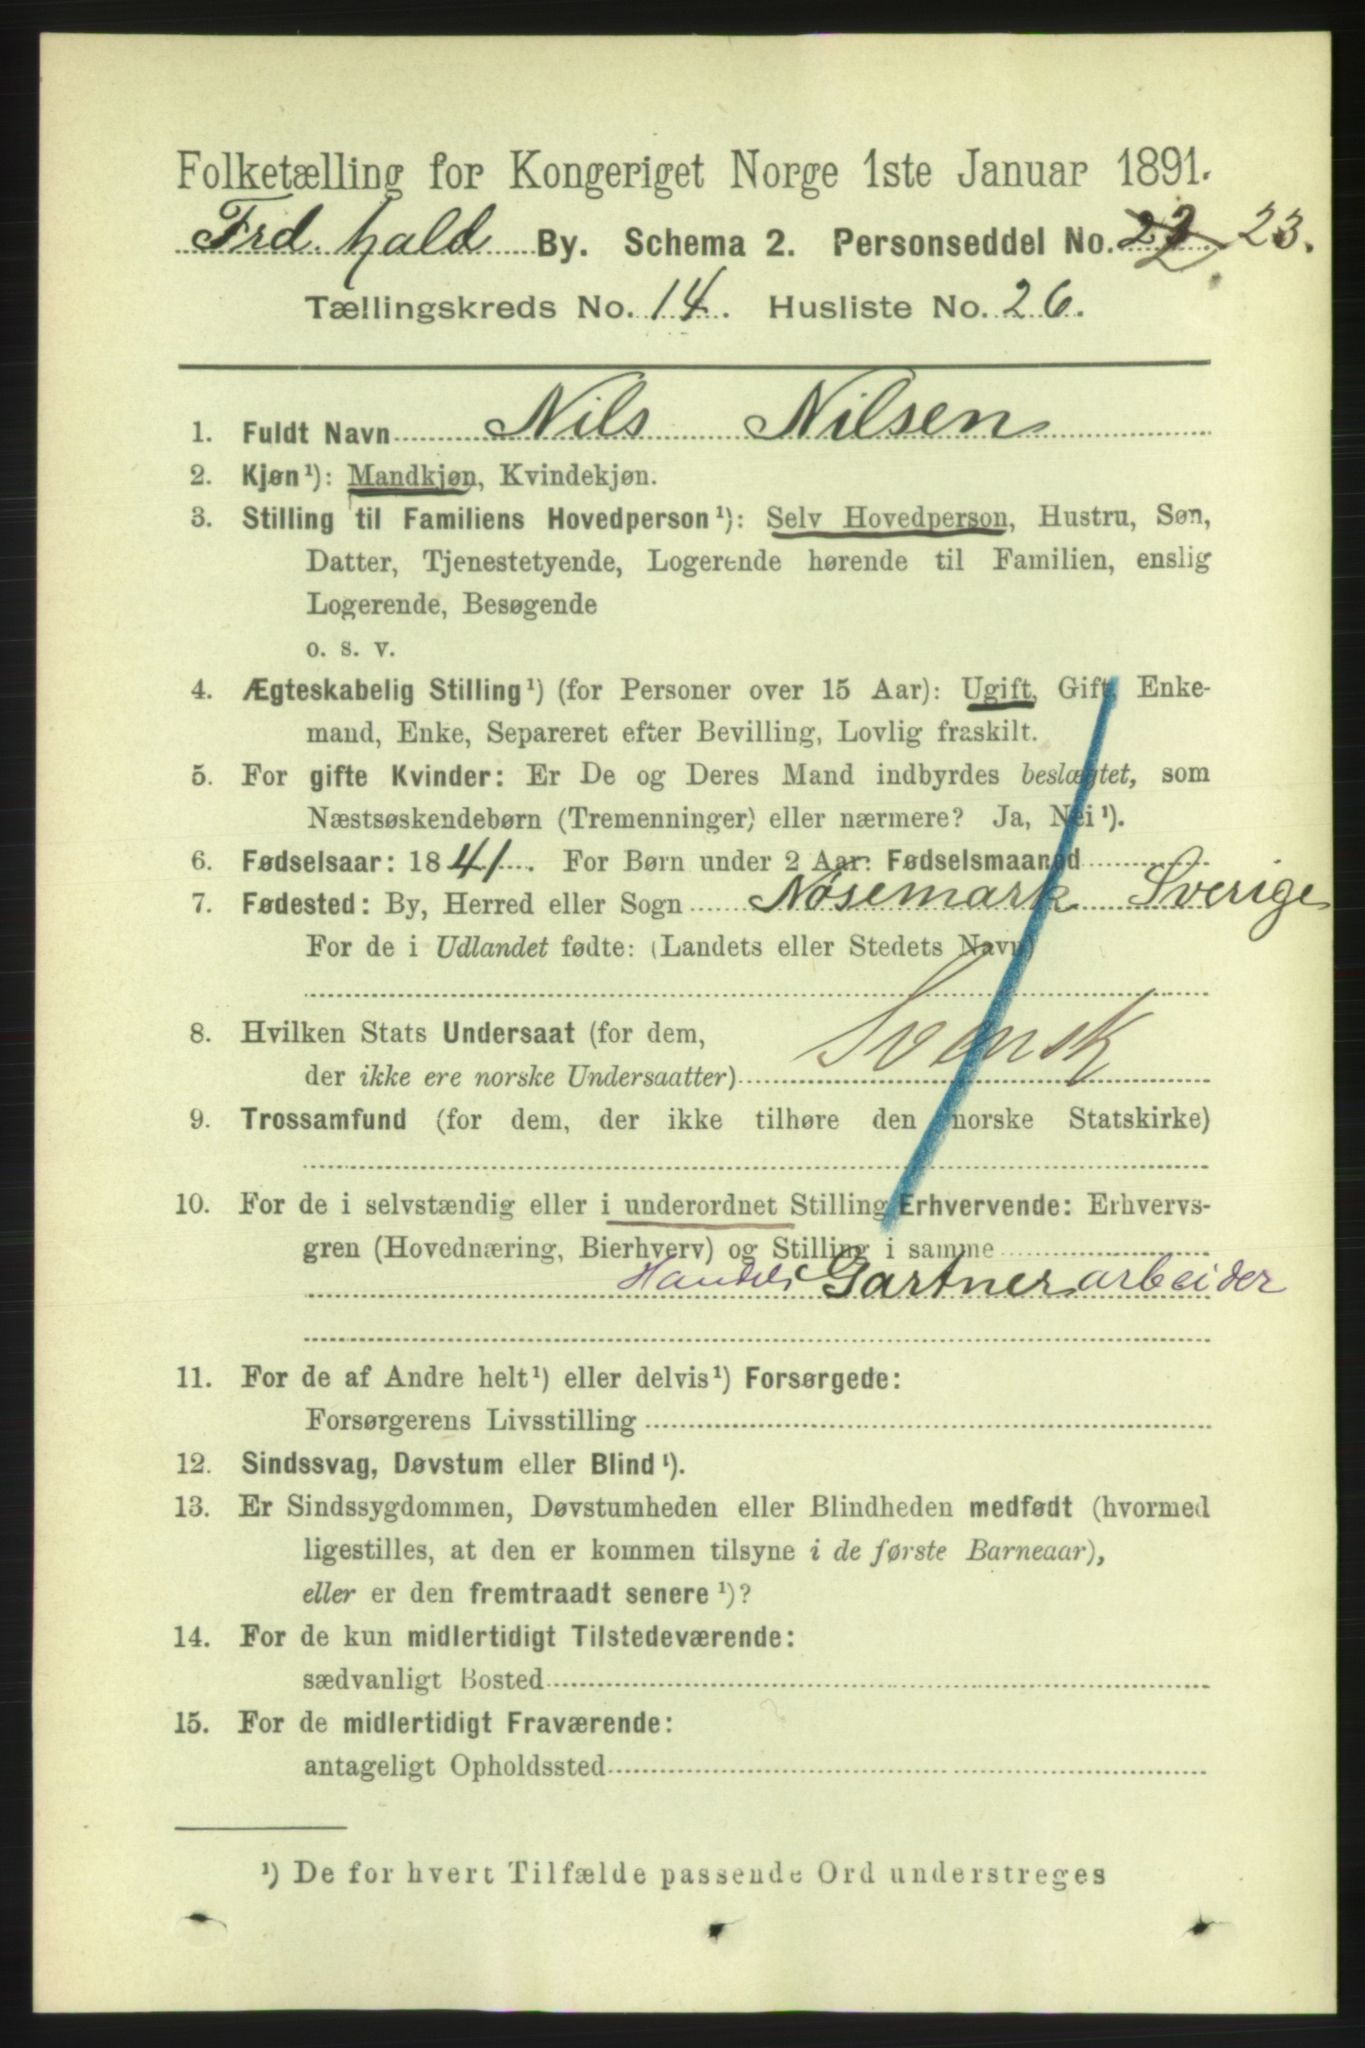 Folketælling for Kongeriget Norge 1ste Januar 1891.
Frd. hald By. Schema 2. Personseddel No. 22 23.
Tællingskreds No. 14. Husliste No. 26.
1. Fuldt Navn Nils Nilsen
2. Kjøn¹): Mandkjøn, Kvindekjøn.
3. Stilling til Familiens Hovedperson¹): Selv Hovedperson, Hustru, Søn,
Datter, Tjenestetyende, Logerende hørende til Familien, enslig
Logerende, Besøgende
o. s. v.
4. Ægteskabelig Stilling¹) (for Personer over 15 Aar): Ugift, Gift, Enke-
mand, Enke, Separeret efter Bevilling, Lovlig fraskilt.
5. For gifte Kvinder: Er De og Deres Mand indbyrdes beslægtet, som
Næstsøskendebørn (Tremenninger) eller nærmere? Ja, Nei¹).
6. Fødselsaar: 1841. For Børn under 2 Aar: Fødselsmaaned
7. Fødested: By, Herred eller Sogn Nøsemark Sverige
For de i Udlandet fødte: (Landets eller Stedets Navn)
8. Hvilken Stats Undersaat (for dem, Svensk
der ikke ere norske Undersaatter)
9. Trossamfund (for dem, der ikke tilhøre den norske Statskirke)
10. For de i selvstændig eller i underordnet Stilling Erhvervende: Erhvervs-
gren (Hovednæring, Bierhverv) og Stilling i samme
Handels Gartner arbeider
11. For de af Andre helt¹) eller delvis¹) Forsørgede:
Forsørgerens Livsstilling
12. Sindssvag, Døvstum eller Blind¹).
13. Er Sindssygdommen, Døvstumheden eller Blindheden medfødt (hvormed
ligestilles, at den er kommen tilsyne i de første Barneaar),
eller er den fremtraadt senere¹)?
14. For de kun midlertidigt Tilstedeværende:
sædvanligt Bosted
15. For de midlertidigt Fraværende:
antageligt Opholdssted
¹) De for hvert Tilfælde passende Ord understreges